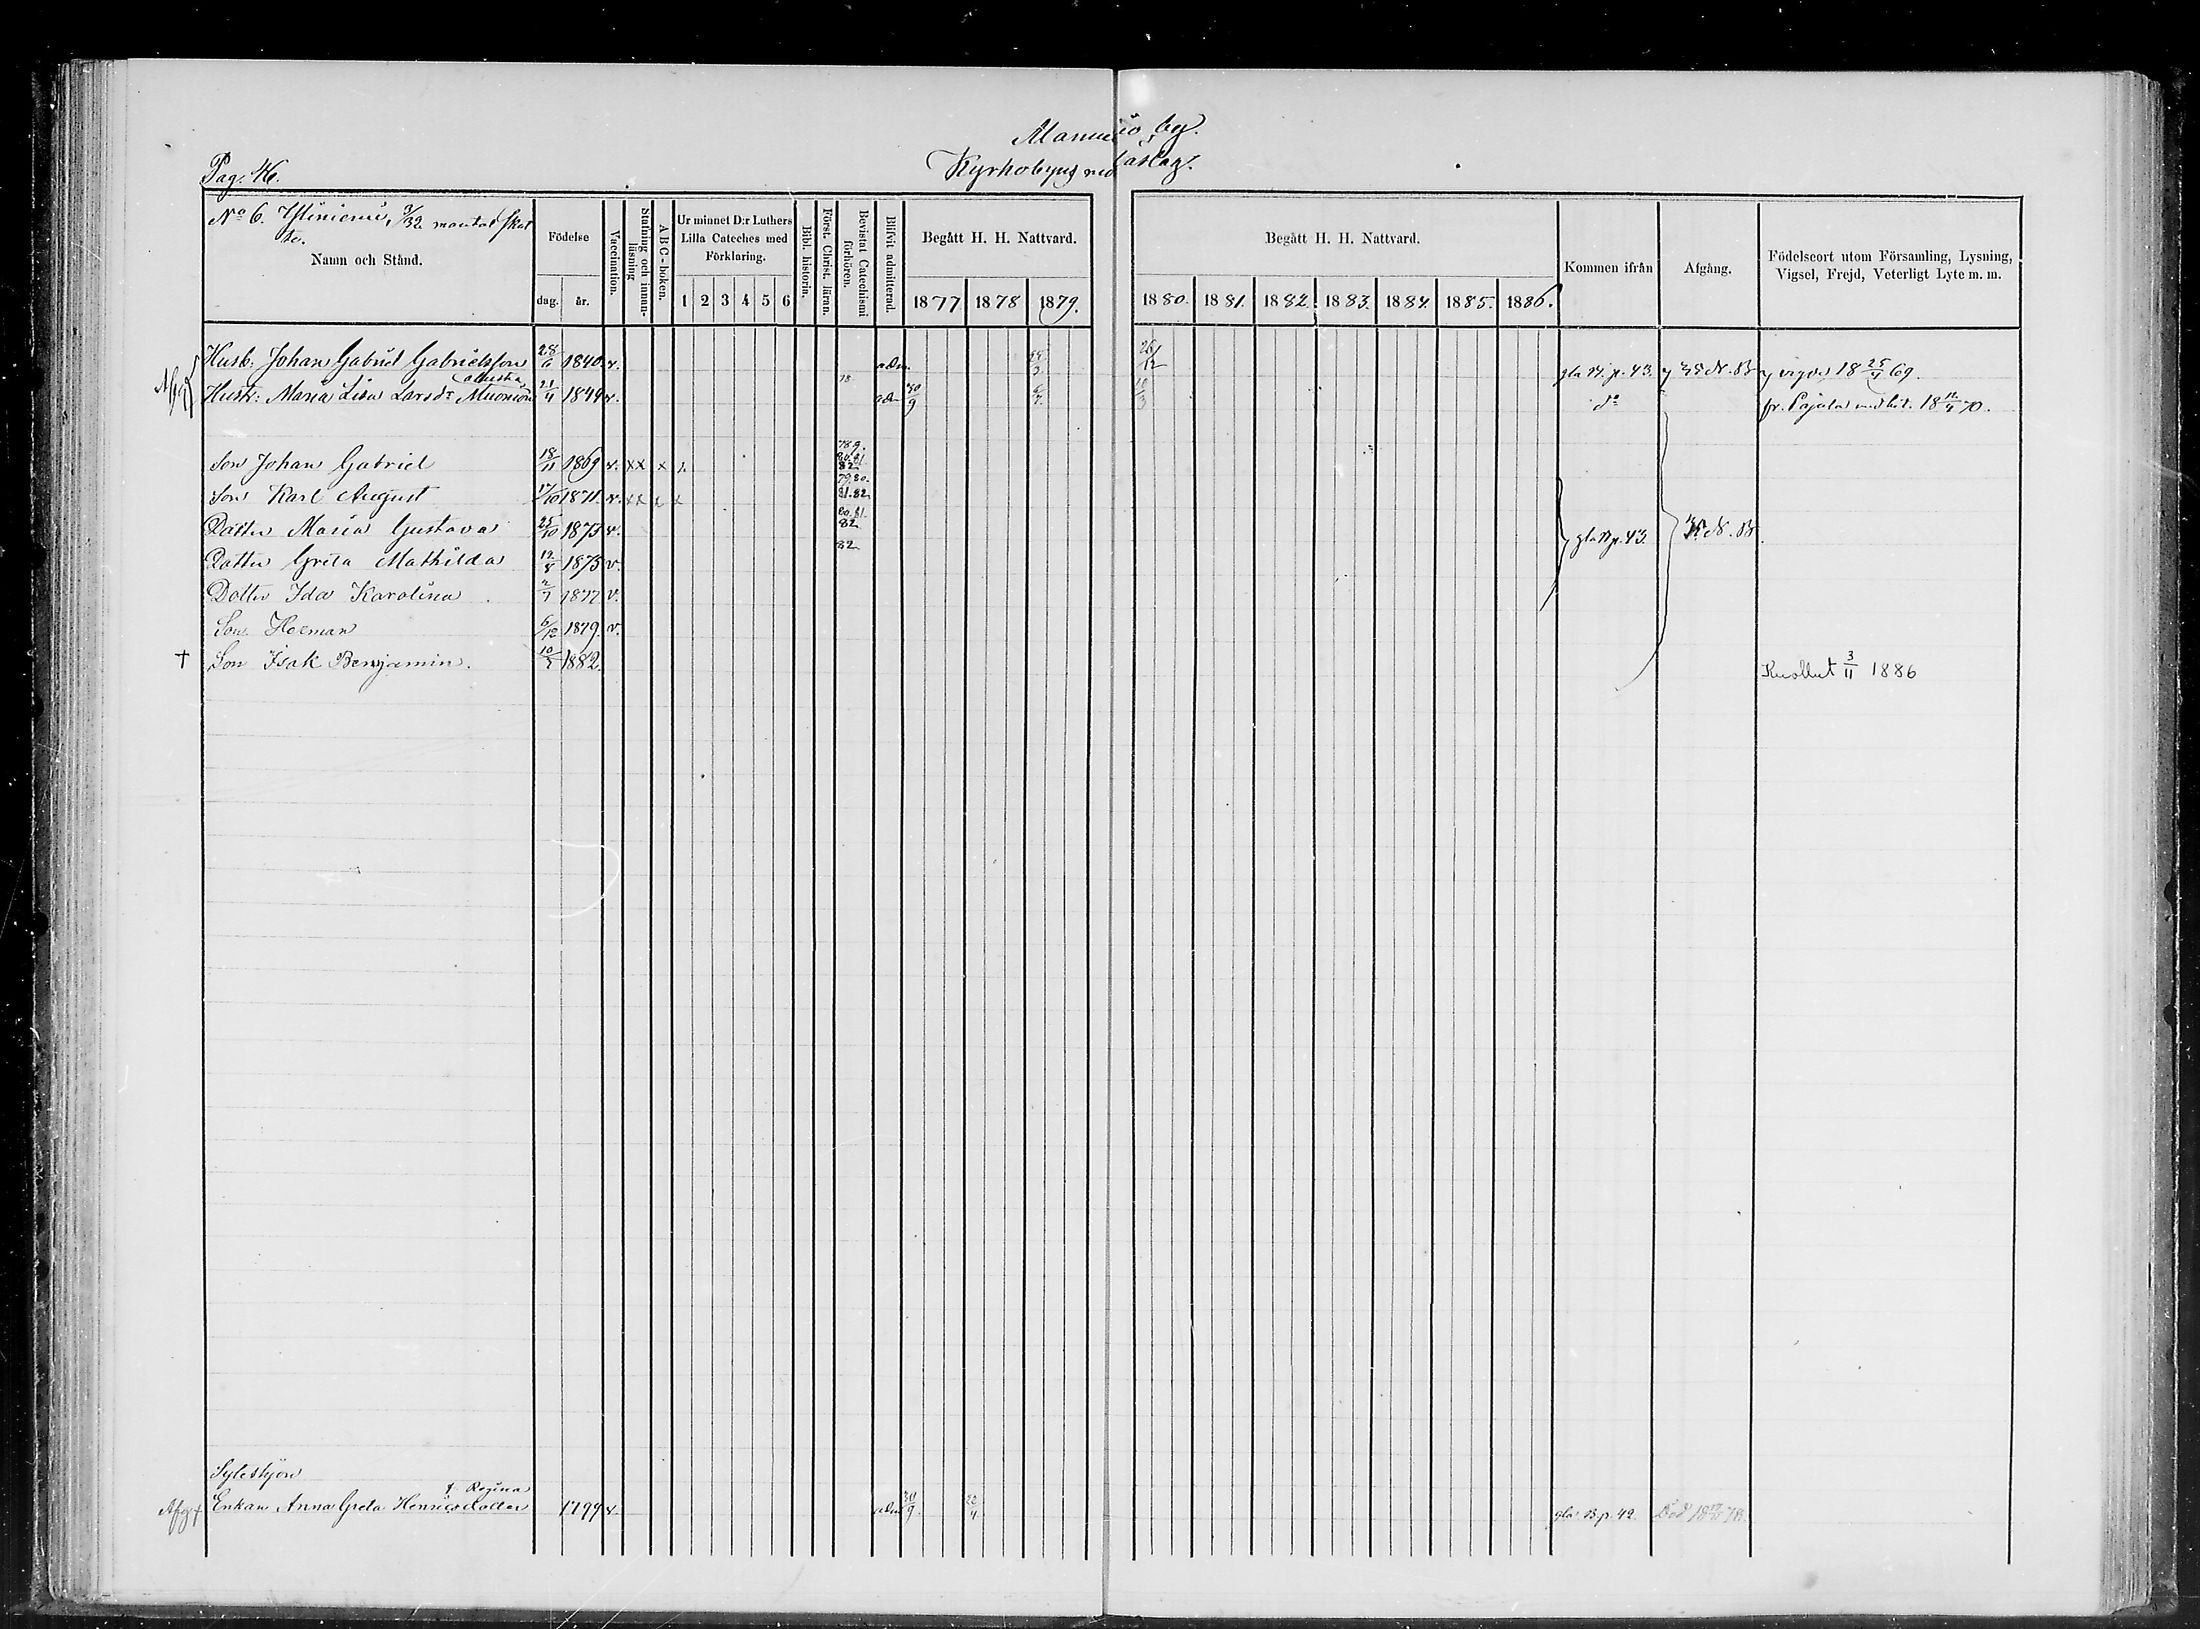 by.
Kyrkobyns
Pag. 46.
No 6. 9/32 mantal skat
te.
Namn och Stånd.
Födelse
dag. år.
Vaccination.
Stafning och innan-
läsning
ABC-boken.
Ur minnet D:r Luthers
Lilla Cateches med
Förklaring.
1 2 3 4 5 6
Bibl. historin.
Först. Christ. läran.
Bevistat Catechismi
förhören.
Blifvit admitterad.
Begått H. H. Nattvard.
1877 1878 1879.
Begått H. H. Nattvard.
1880. 1881. 1882. 1883. 1884. 1885. 1886.
Kommen ifrån
Afgång.
Födelseort utom Församling, Lysning,
Vigsel, Frejd, Veterligt Lyte m. m.
Husb. Johan Gabriel Gabrielsson 28/6 1840. v. adm. 26/12 gla B. p. 43. 35 N. B. vigde 18 25/4 69.
Augusta
Hustr: Maria Lisa Larsdr 21/4 1849 v. adm 30/9 do fr. Pajala med bet. 18 /4 70.
Son Johan Gabriel 18/11 1869 v. xx x
78 9. 80.81. 82
Son Karl August 17/10 1871. v. xx x x 79.80. 81.82
Dotter Maria Gustava 25/10 1873 v. 80.81. 82 gla B p. 43. N. B.
Dotter Greta Mathilda 1875 v. 82
Dotter Ida Karolina 2/7 1877 v.
Son Herman 6/12 1879. v.
† Son Isak Benjamin. 10/5 1882. Kuollut 3/11 1886
Syteshjon
f. Regina
Afg † Enkan Anna Greta Henriksdotter 1799 v. adm 30/9 22/4 gla B p. 42. Död 18 78